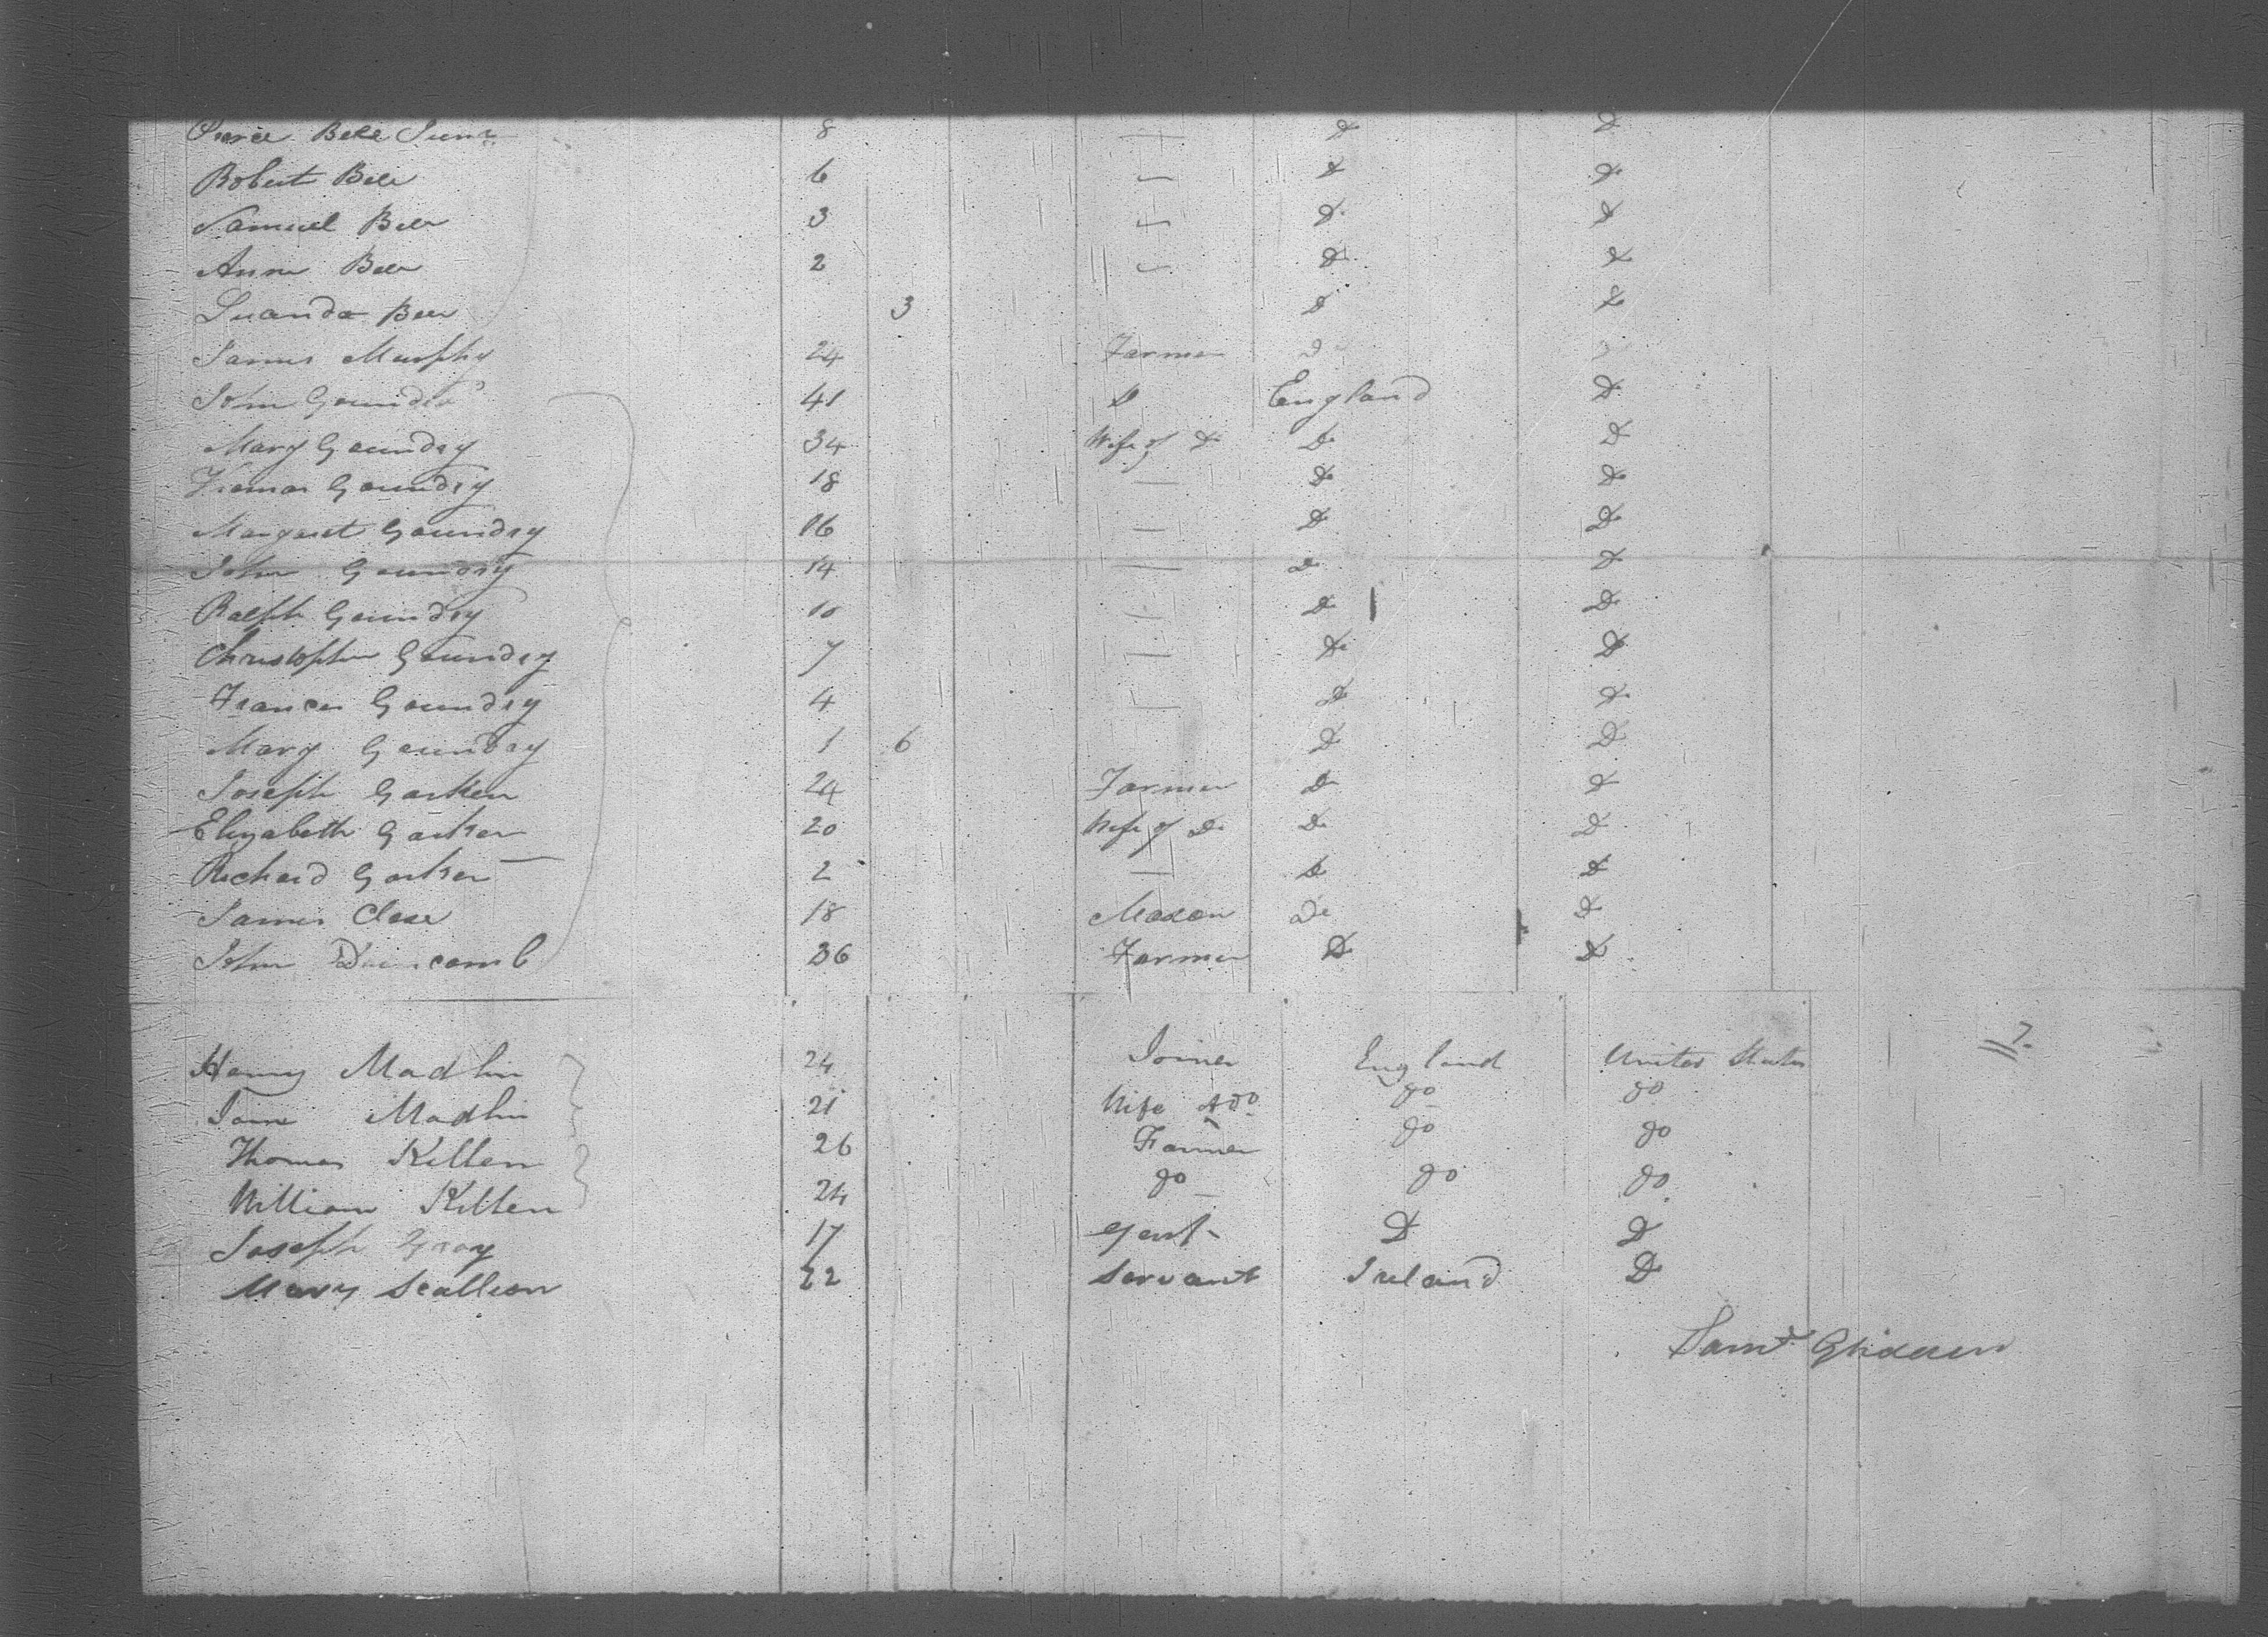 Pierce Bell Junr 8 — Do Do
Robert Bell 6 — Do Do
Samuel Bell 3 — Do Do
Anne Bell 2 — Do Do
Luanda Bell 3 Do Do
James Murphy 24 Farmer Do Do
John Goundry 41 Do England Do
Mary Goundry 34 Wife of Do Do Do
Thomas Goundry 18 — Do Do
Margaret Goundry 16 — Do Do
John Goundry 14 — Do Do
Ralph Goundry 10 — Do Do
Christopher Goundry 7 — Do Do
Frances Goundry 4 — Do Do
Mary Goundry 1 6 Do Do
Joseph Garker 24 Farmer Do Do
Elizabeth Garker 20 Wife of Do Do Do
Richard Garker 2 — Do Do
James Close 18 Mason Do Do
John Duncomb 36 Farmer Do Do
Henry Madlin 24 Joiner England United States 7.
Jane Madlin 21 Wife do do
Thomas Killen 26 Farmer do do
William Killen 24 do do do
Joseph Gray 17 Gent D Do
Mary Scallion 22 Servant Ireland Do
Saml Glidden